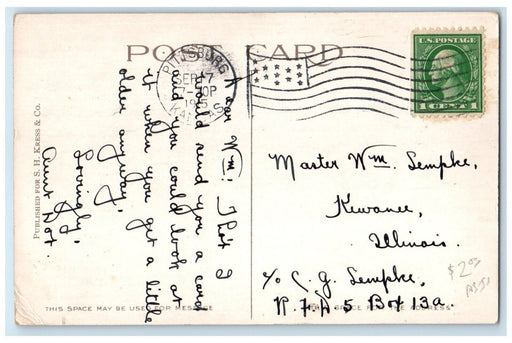 POST CARD
PITTSBURG
SEP 7
7-30P
1915
KANS.
U.S. POSTAGE
1 CENT 1
Dear Wm: Tho't I
would send you a card
and you could look at
it when you get a little
older anyway.
Lovingly,
Aunt Dot.
PUBLISHED FOR S. H. KRESS & CO.
Master Wm. Sempke,
Kewanee,
Illinois.
c/o C. G. Sempke,
R.F.D 5 Box 13a.
$2.00
THIS SPACE MAY BE USED FOR MESSAGE
SPACE FOR THE ADDRESS